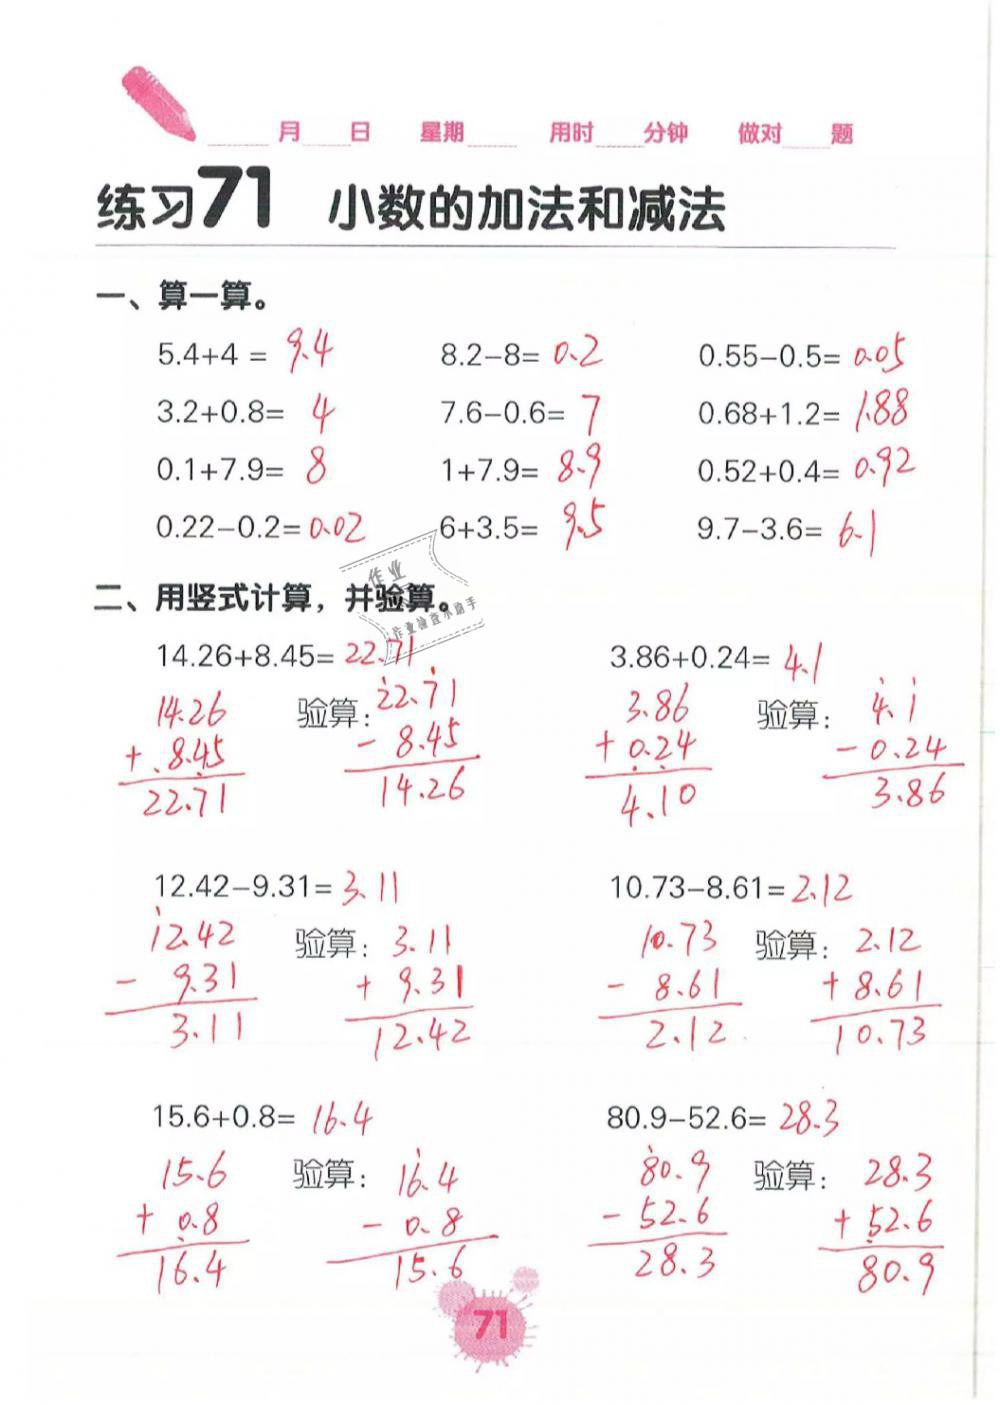 月 日 星期 用时 分钟 做对 题
练习71 小数的加法和减法
一、算一算。
5.4+4 = 9.4 8.2-8= 0.2 0.55-0.5= 0.05
3.2+0.8= 4 7.6-0.6= 7 0.68+1.2= 1.88
0.1+7.9= 8 1+7.9= 8.9 0.52+0.4= 0.92
0.22-0.2= 0.02 6+3.5= 9.5 9.7-3.6= 6.1
作业
作业检查小助手
二、用竖式计算，并验算。
14.26+8.45= 22.71 3.86+0.24= 4.1
14.26 验算: 22.71 3.86 验算: 4.1
+ 8.45 - 8.45 + 0.24 - 0.24
22.71 14.26 4.10 3.86
12.42-9.31= 3.11 10.73-8.61= 2.12
12.42 验算: 3.11 10.73 验算: 2.12
- 9.31 + 9.31 - 8.61 + 8.61
3.11 12.42 2.12 10.73
15.6+0.8= 16.4 80.9-52.6= 28.3
15.6 验算: 16.4 80.9 验算: 28.3
+ 0.8 - 0.8 - 52.6 + 52.6
16.4 15.6 28.3 80.9
71